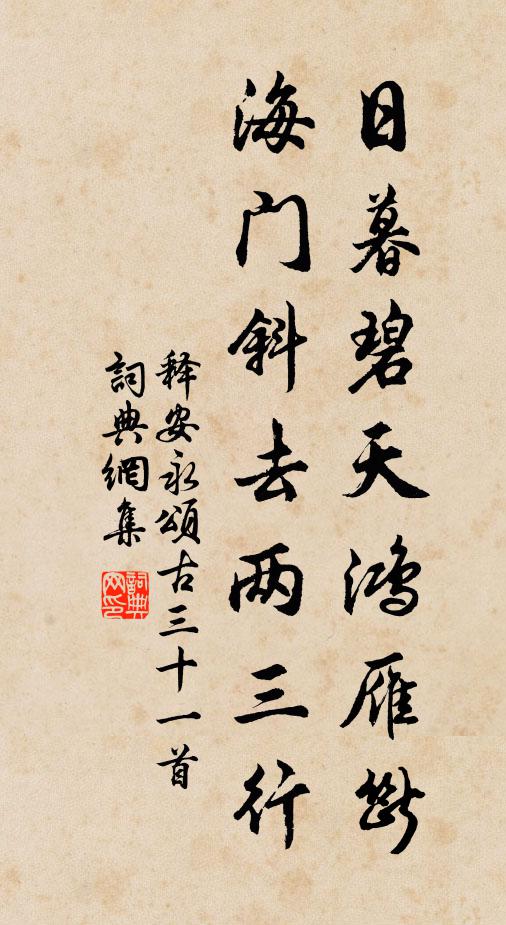 日暮碧天鸿雁断
海门斜去两三行
释安永頌古三十一首
詞典網集
詞典
网印